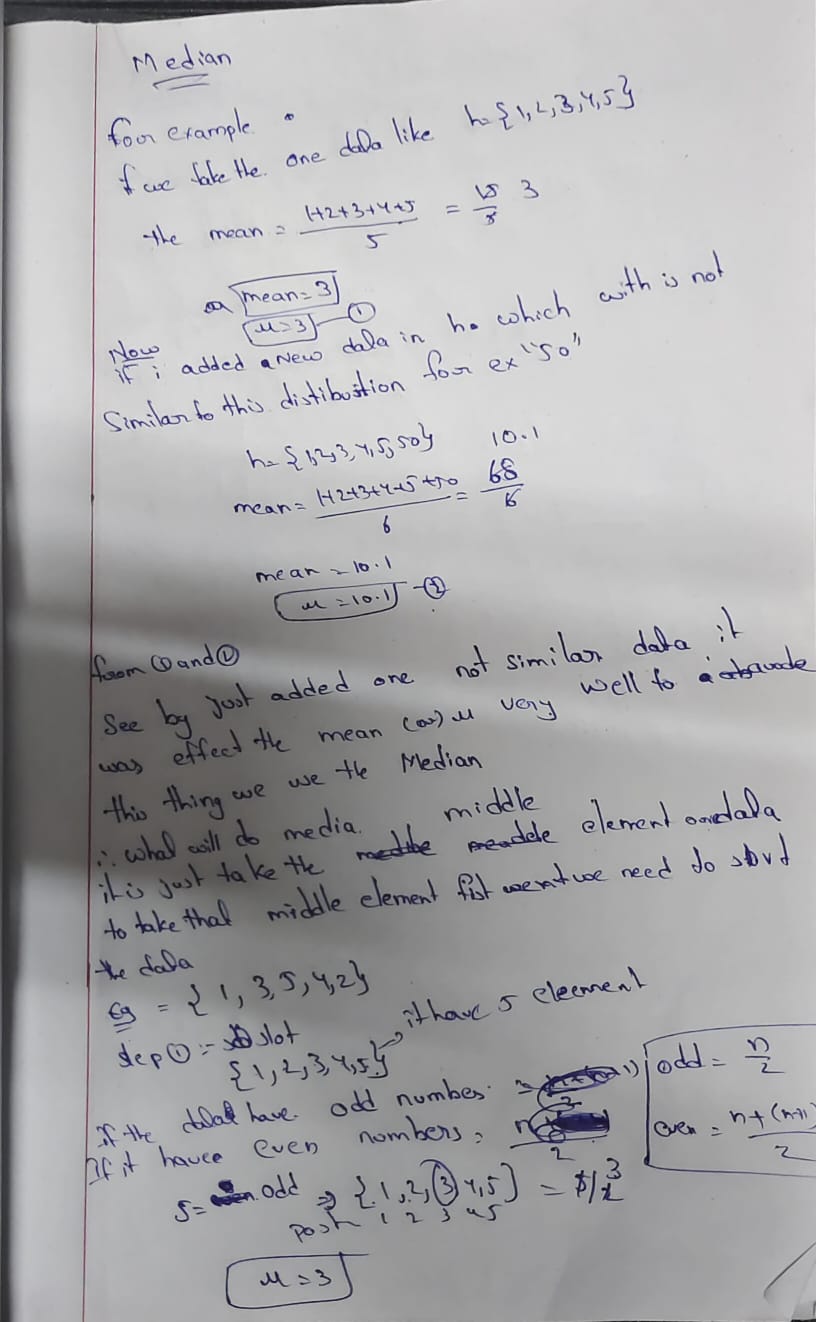 Median
foor example.
if we take the one data like h={1,2,3,4,5}
the mean = 1+2+3+4+5 / 5 = 15/5 3
mean=3
μ=3 - ①
Now
if i added a New data in h. which with is not
Similar to this distibution foor ex "50"
h={1,2,3,4,5,50}
mean= 1+2+3+4+5+50 / 6 = 68/6 10.1
mean = 10.1
μ=10.1 - ②
from ① and ②
See by just added one not similar data it
was effect the mean (or) μ very well to
this thing we we the Median
∴ what will do media.
it is just take the middle element data
to take that middle element fist we need to
the data
Eg = {1,3,5,4,2}
step ① :-
{1,2,3,4,5} → it have 5 eleement
if the data have odd number =
If it havee even numbers, n / 2
odd = n/2
even = n+(n+1) / 2
5= odd ⇒ {1,2,3,4,5} = 5/2 3
1 2 3 4 5
μ=3